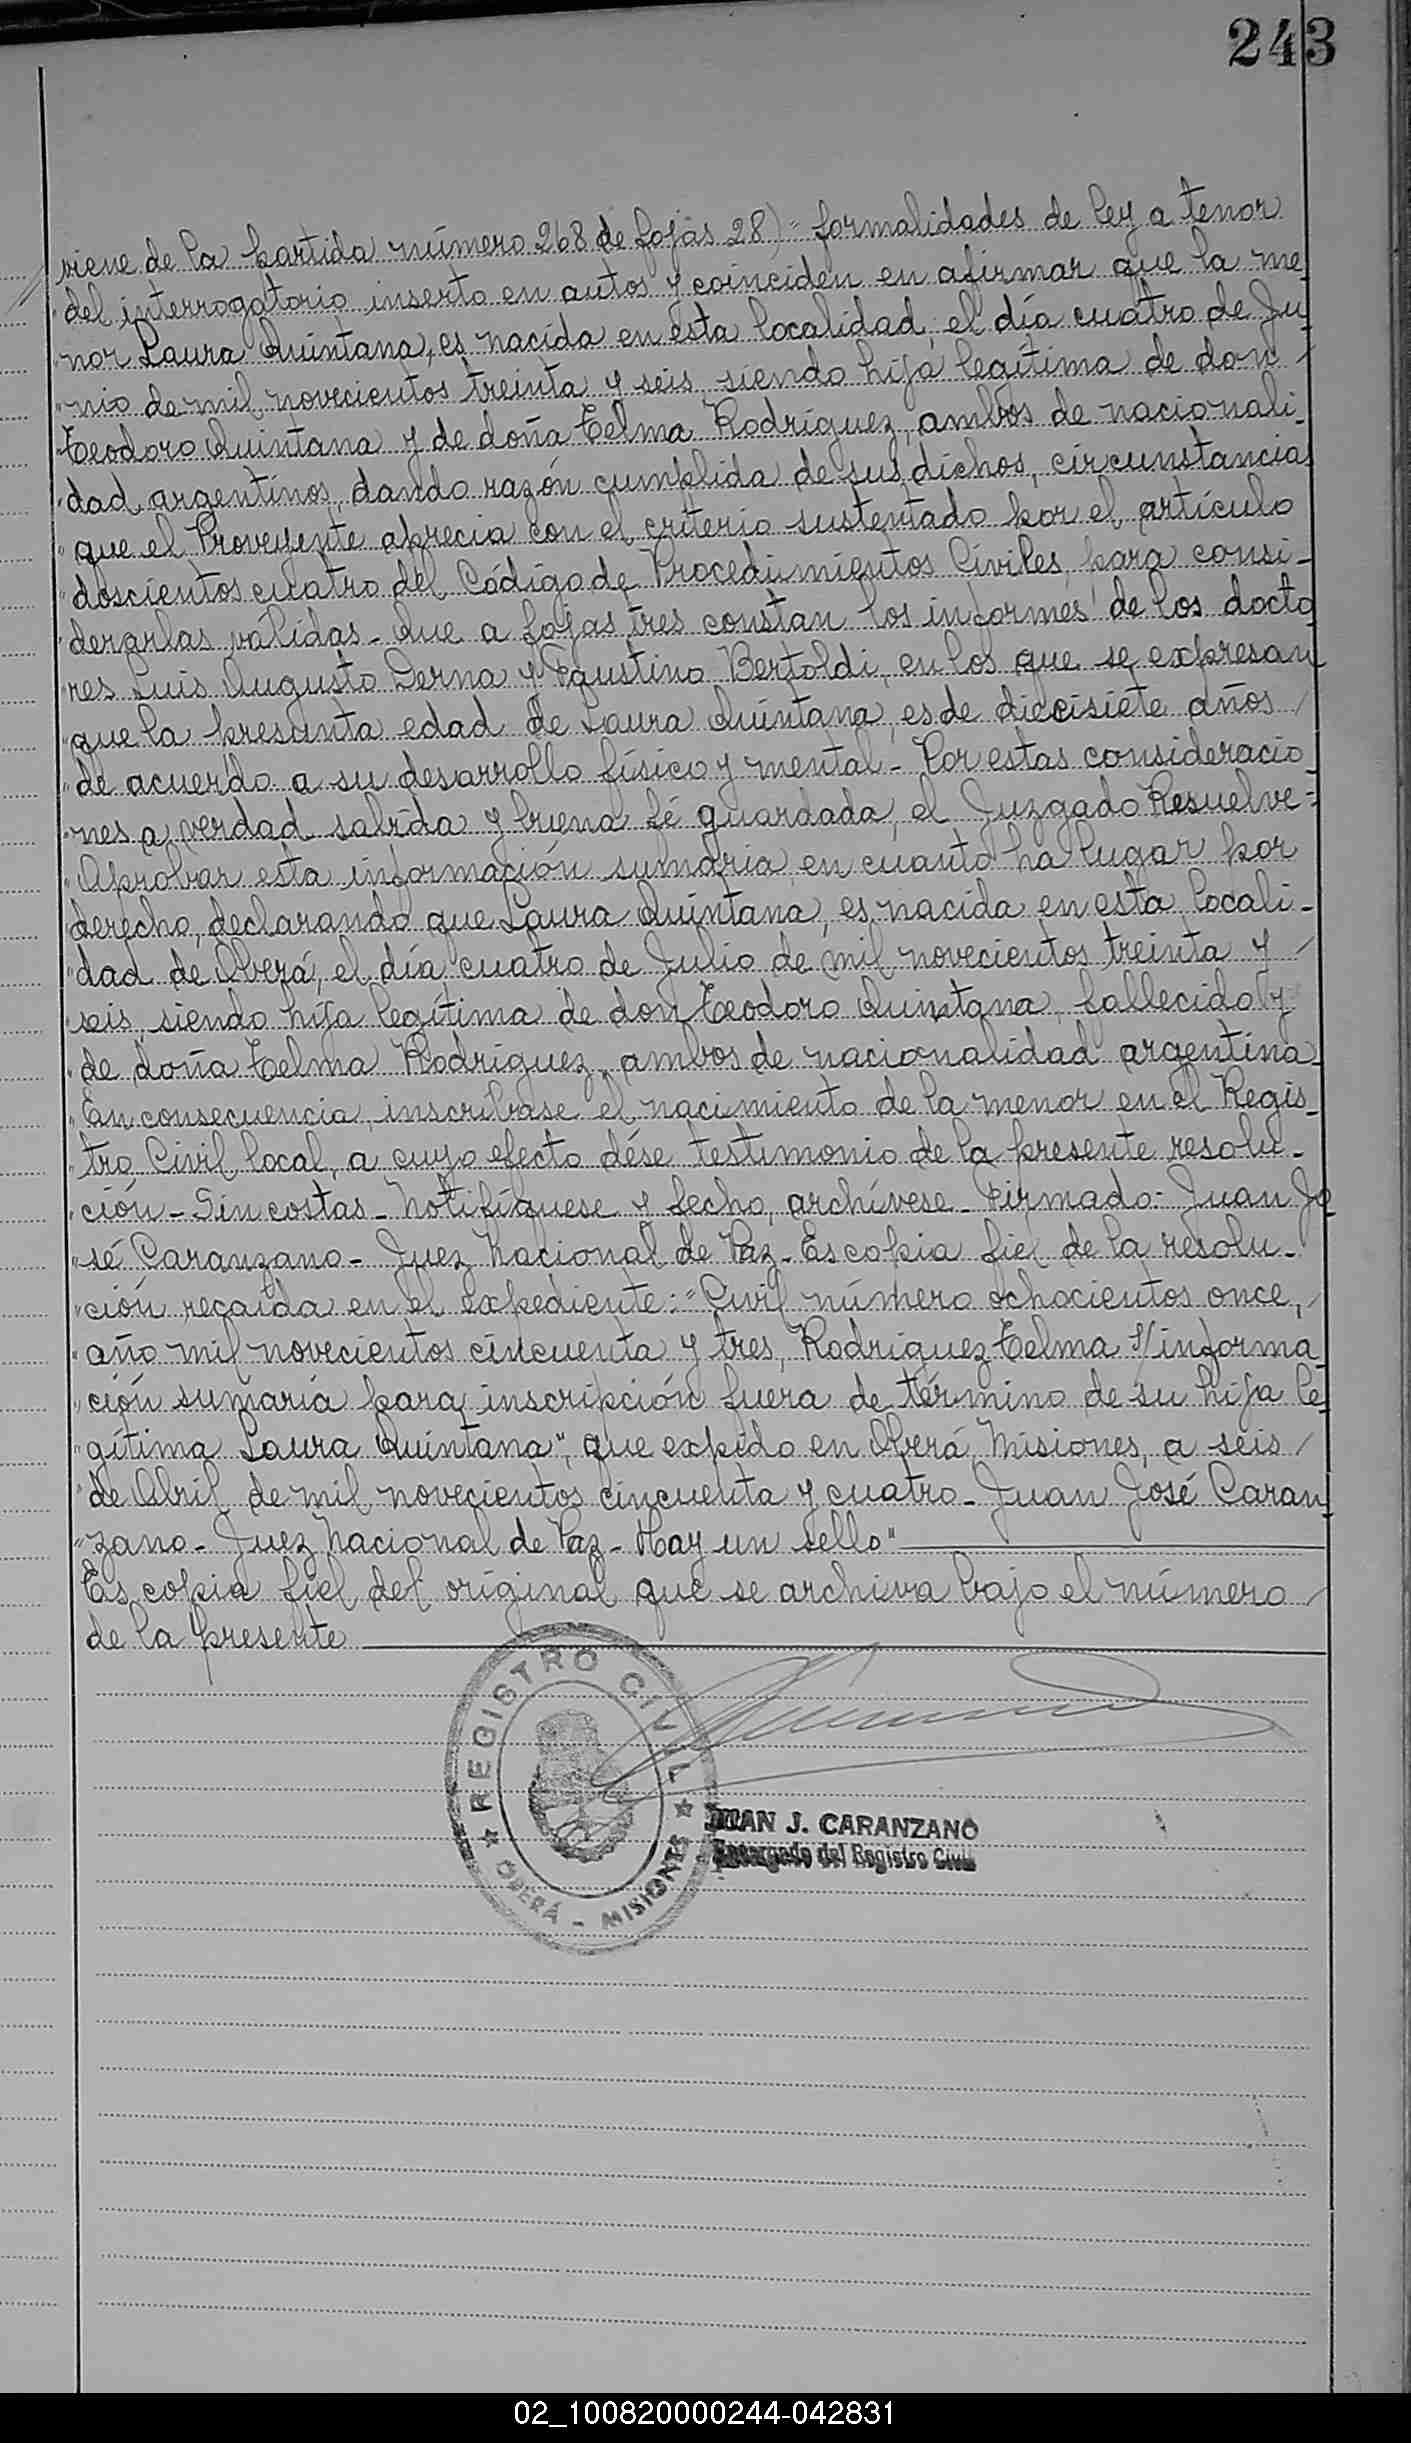 243
viene de la partida número 268 de fojas 28) = formalidades de ley a tenor
"del interrogatorio inserto en autos y coinciden en afirmar que la me-
"nor Laura Quintana, es nacida en ésta localidad, el día cuatro de Ju-
"nio de mil novecientos treinta y seis, siendo hija legítima de don /
"Teodoro Quintana y de doña Telma Rodríguez, ambos de nacionali-
"dad argentinos, dando razón cumplida de sus dichos, circunstancias
"que el Proveyente aprecia con el criterio sustentado por el artículo
"doscientos cuatro del Código de Procedimientos Civiles, para consi-
"derarlas válidas - Que a fojas tres constan los informes de los docto
"res Luis Augusto Derna y Agustino Bertoldi, en los que se expresan
"que la presunta edad de Laura Quintana, es de diecisiete años /
"de acuerdo a su desarrollo físico y mental - Por estas consideracio
"nes a verdad sabida y buena fé guardada, el Juzgado Resuelve =
"Aprobar esta información sumaria en cuanto ha lugar por
derecho, declarando que Laura Quintana, es nacida en esta locali-
"dad de Oberá, el día cuatro de Julio de mil novecientos treinta y /
"seis, siendo hija legítima de don Teodoro Quintana, fallecido y
"de doña Telma Rodríguez, ambos de nacionalidad argentina
"En consecuencia, inscríbase el nacimiento de la menor en el Regis-
"tro Civil local, a cuyo efecto dése testimonio de la presente resolu-
"ción - Sin costas - Notifíquese y fecho, archívese - Firmado: Juan Jo
"sé Caranzano - Juez Nacional de Paz - Es copia fiel de la resolu-
"ción recaída en el expediente: "Civil número ochocientos once, /
"año mil novecientos cincuenta y tres, Rodríguez Telma s/informa
"ción sumaria para inscripción fuera de término de su hija le-
"gítima Laura Quintana", que expido en Oberá, Misiones, a seis /
"de Abril de mil novecientos cincuenta y cuatro - Juan José Caran-
"zano - Juez Nacional de Paz - Hay un sello"
Es copia fiel del original que se archiva bajo el número /
de la presente
REGISTRO CIVIL
OBERÁ - MISIONES
JUAN J. CARANZANO
Encargado del Registro Civil
02_100820000244-042831